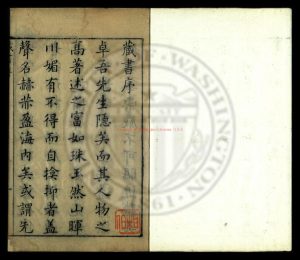 藏書序
卓吾先生隱矣而其人物之
萬著述之富如珠玉然山暉
川媚有不得而自揜抑者蓋
聲名赫赫盈海內矣或謂先
WASHINGTON
1861